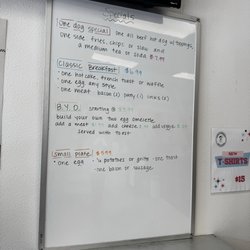 SPECIALS
one dog special - one all beef hot dog w/ toppings,
one side fries, chips or slaw and
a medium tea or soda $7.99
Classic Breakfast $6.99
• one hotcake, french toast or waffle
• one egg any style
• one meat bacon (2) patty (1) links (2)
B.Y.O. starting @
build your own two egg omelette
add a meat add cheese add veggie
served with toast
small plate $5.99
• one egg • potatoes or grits • one toast
• one bacon or sausage
NEW
T-SHIRTS
$15